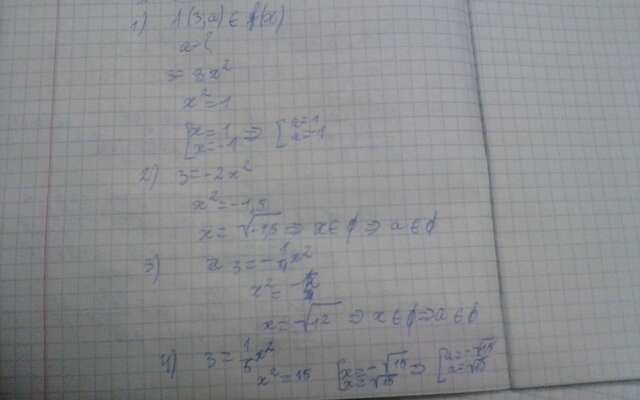 1) A(3;a) ∈ f(x)
a-?
3 = 3x²
x² = 1
[x=1 x=-1 ⇒ [a=1 a=-1
2) 3 = -2x²
x² = -1,5
x = √-1,5 ⇒ x∈∅ ⇒ a∈∅
3) 3 = -1/4x²
x = √-12 ⇒ x∈∅ ⇒ a∈∅
4) 3 = 1/5x²
x² = 15 [x=-√15 x=√15 ⇒ [a=-√15 a=√15